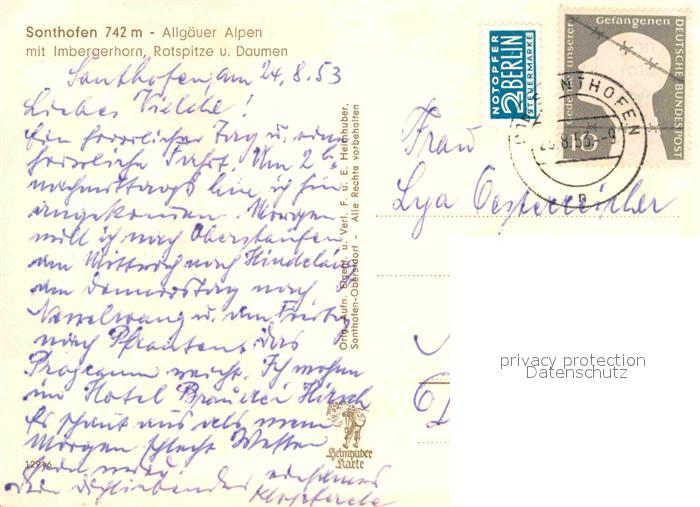 Sonthofen 742 m - Allgäuer Alpen
mit Imbergerhorn, Rotspitze u. Daumen
Sonthofen, am 24.8.53
Liebes
Ein herrlicher Tag u. eine
herrliche Fahrt. Um 2
nachmittags bin ich hier
angekommen. Morgen
will ich nach Oberstaufen
am Mittwoch nach Hindelang
am Donnerstag nach
Nesselwang u. am Freitag
nach Pfronten das
Programm reicht. Ich wohne
im Hotel Brauerei Hirsch
Es schaut aus als wenn
Morgen schlecht Wetter
12916
Orig. Aufn. Eigent. u. Verl. F. u. E. Heimhuber,
Sonthofen-Oberstdorf - Alle Rechte vorbehalten
Heimhuber
Karte
NOTOPFER
2 BERLIN
STEUERMARKE
Gedenket unserer Gefangenen
DEUTSCHE BUNDESPOST
10
SONTHOFEN
25.8.53-9
Frau
Lya Oesterreicher
privacy protection
Datenschutz